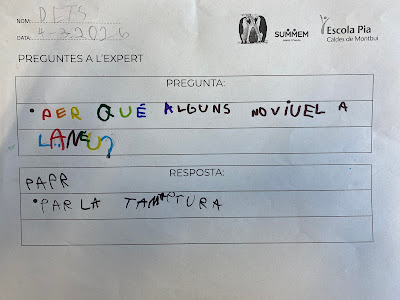 NOM: DETS
DATA: 4-2-2026
SUMMEM
Escola Pia
Caldes de Montbui
PREGUNTES A L'EXPERT
PREGUNTA:
• PER QUÉ ALGUNS NOVIUEL A
LANEU?
RESPOSTA:
PAPR
• PAR LA